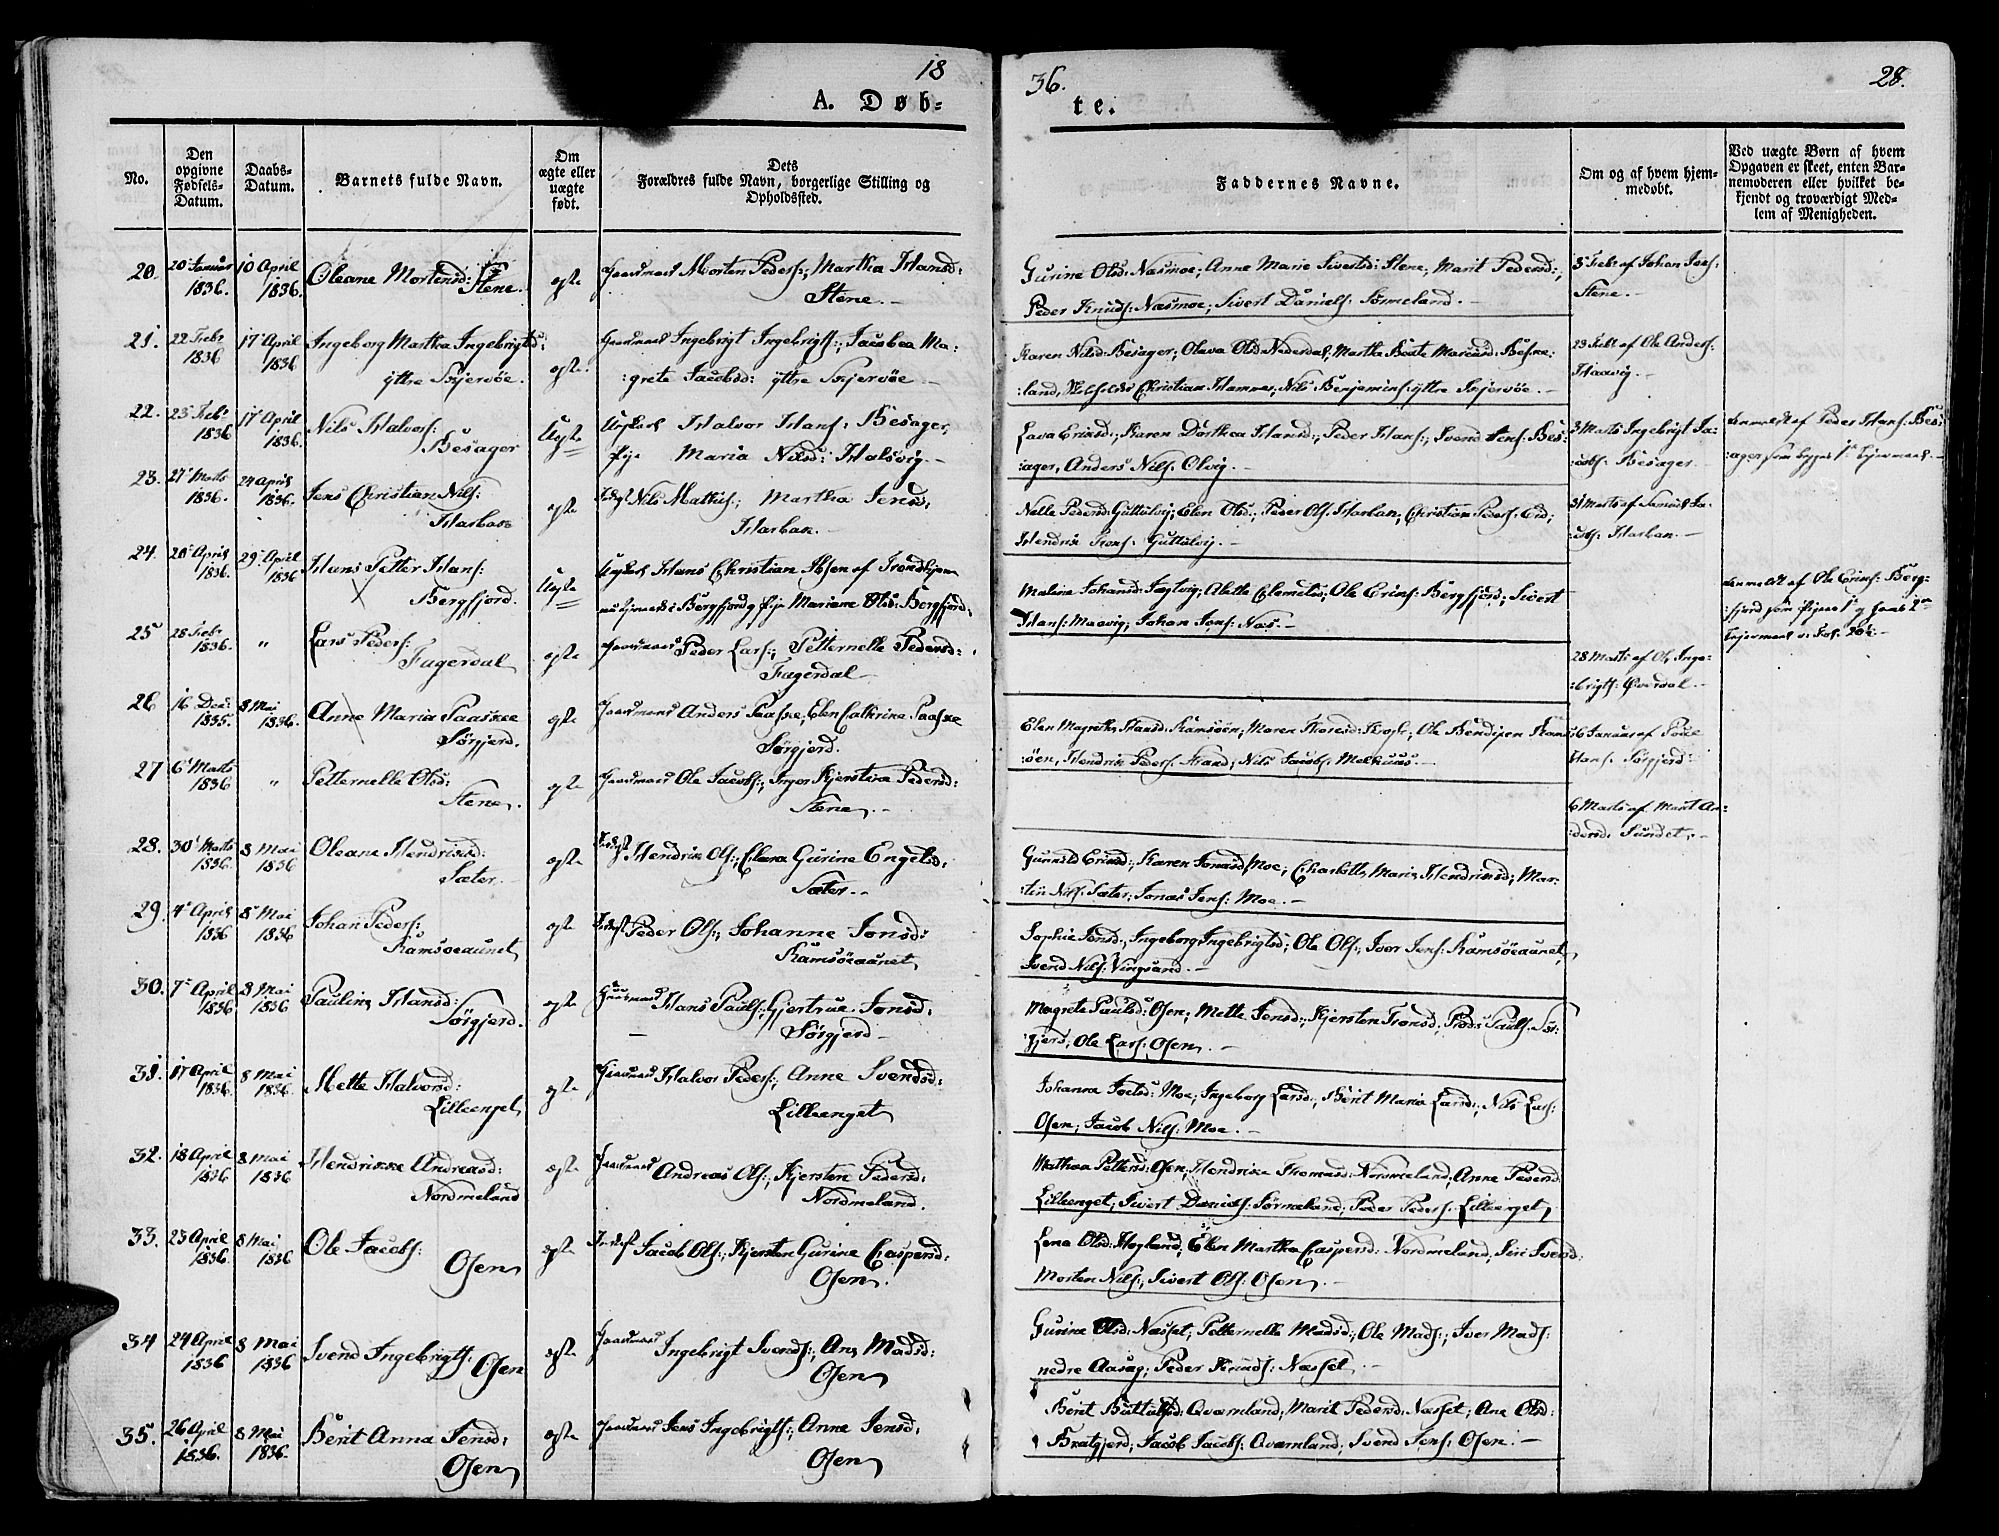 18
36.
28.
A. Døb-
te.
No.
Den opgivne Fødsels-Datum.
Daabs-Datum.
Barnets fulde Navn.
Om ægte eller uægte født.
Dets Forældres fulde Navn, borgerlige Stilling og Opholdssted.
Faddernes Navne.
Om og af hvem hjem-medøbt.
Ved uægte Børn af hvem Opgaven er skeet, enten Bar-nemoderen eller hvilket be-kjendt og troværdigt Med-lem af Menigheden.
20. 20 Januar 1836. 10 April 1836. Oleane Mortensd: Stene. egte Morten Peders:, Martha Hansd:
Stene.
Gurine Olsd: Næsmoe; Anne Marie Sivertsd: Stene, Marit Pedersd:,
Peder Knuds: Næsmoe; Sivert Daniels: Sørmeland.
af Johan
Stene.
21. 22 Febr 1836 17 April 1836 Ingeborg Martha Ingebrigtsd:
yttre Skjervøe. egte. Ingebrigt Ingebrigts:, Jacobea Ma-
:grete Jacobsd: yttre Skjervøe
Karen Nilsd: Besager; Olava Olsd Nederdal, Martha
:land, Christian Hamnes; Nils Benjamins: yttre Skjervøe.
23 af Ole Anders:
22. 23 Febr 1836 17 April 1836. Nils Halvors:
Besager Uegte Halvor Hans: Besager,
Pige Maria Nilsd: Halsvig.
Karen Dorthea Hansd:, Peder Hans:, Svend Jens: Bes-
:ager, Anders Nils: Olvig.
3 Marts Ingebrigt Ja-
:cobs: Besager.
af Peder Hans: Bes-
:ager som
23. 27 Marts 1836. 24 April 1836. Jens Christian Nils:
Harbak egte Nils Mathis:, Martha Jensd:
Harbak.
Nelle Pedersd: Guttelvig; Elen Olsd:, Peder Ols: Harbak, Christian Peders:
Hendrik Guttelvig.
31 Marts af Ja-
Harbak.
24. 20 April 1836. 29 April 1836 Hans Petter Hans:
Bergfjord. Uegte Hans Christian Ibsen af Trondhjem
Bergfjord og Pige Mariane Olsd: Bergfjord.
Malene Johansd: Ole Erics: Bergfjord; Sivert
Hans: Johan Jons: Næs.
af Ole Erics: Berg-
:fjord som
25 28 Febr 1836. „ Lars Peders:
Fagerdal egte Peder Lars:, Petternelle Pedersd:
Fagerdal
28 Marts af Ole Inge-
:brigts:
26 16 Dec: 1835. 8 Mai 1836. Anne Maria Paaske
Sørgjerd. egte Anders Paaske, Elen Cathrine Paaske
Sørgjerd.
Elen Magretha Hansd: Ramsöen; Ole
:öen, Hendrik Peders: Strand, Nils Jacobs:
16 Januar af
Hans: Sørgjerd
27 6 Marts 1836 „ Petternelle Olsd:
Stene. egte Ole Jacobs:, Kjerstina Pedersd:
Stene.
6 Marts af Marit An-
:dersd: Sundet.
28. 30 Marts 1836. 8 Mai 1836 Oleane Hendriksd:
Sæter. egte Hendrik Ols:, Elara Gurine Engelsd:
Sæter.
Gunnild Ericsd:, Karen Jonasd Moe; Charlotte Maria Hendriksd; Mar-
:tin Nils: Sæter; Jonas Jens: Moe.
29. 4 April 1836 8 Mai 1836 Johan Peders:
Ramsøeaunet egte Peder Ols:, Johanne Jonsd:
Ramsøeaunet
Sophie Jonsd:, Ingeborg Ingebrigtsd:, Ole Ols:, Iver Jens: Ramsøeaunet,
Svend Nils: Vingsand.
30. 7 April 1836 8 Mai 1836 Pauline Hansd:
Sørgjerd. egte Huusmand Hans Pauls:, Gjertrue Jonsd:
Sørgjerd
Magrete Paulsd: Osen; Mette Jensd:, Kjersten Tronsd; Pauls: Sør-
gjerd; Ole Lars: Osen.
31. 17 April 1836. 8 Mai 1836. Mette Halvorsd:
Lilleenget egte Halvor Peders:, Anne Svendsd:
Lilleenget
Johanna Moe; Ingeborg Larsd:, Berit Maria Larsd:, Nils Lars:
Osen; Jacob Nils: Moe.
32. 18 April 1836 8 Mai 1836 Hendrikke Andreasd:
Nordmeland egte Andreas Ols:, Kjersten Pedersd:
Nordmeland.
Mathea Pettersd: Osen, Hendrikke Thomasd: Nordmeland, Anne Pedersd:
Lilleenget, Sivert Daniels: Sørmeland, Peder Peders: Lilleenget
33. 23 April 1836. 8 Mai 1836 Ole Jacobs:
Osen egte Jacob Ols:, Kjersten Gurine Caspersd:
Osen.
Lena Olsd: Høgland, Elen Martha Caspersd: Nordmeland, Siri Svensd:
Morten Nils:, Sivert Ols: Osen.
34 24 April 1836 8 Mai 1836 Svend Ingebrigts:
Osen egte Ingebrigt Svends:, Ane Madsd:
Osen
Gurine Olsd: Næsset, Petternelle Madsd:, Ole Mads:, Iver Mads:
nedre Aasag; Peder Knuds: Næsset.
35. 26 April 1836. 8 Mai 1836. Berit Anna Jensd:
Osen egte Jens Ingebrigts:, Anne Jensd:
Osen
Berit Qvarnland; Marit Pedersd: Næsset; Ane Olsd:
Bratgjerd; Jacob Jacobs: Qvarnland, Svend Jens: Osen.